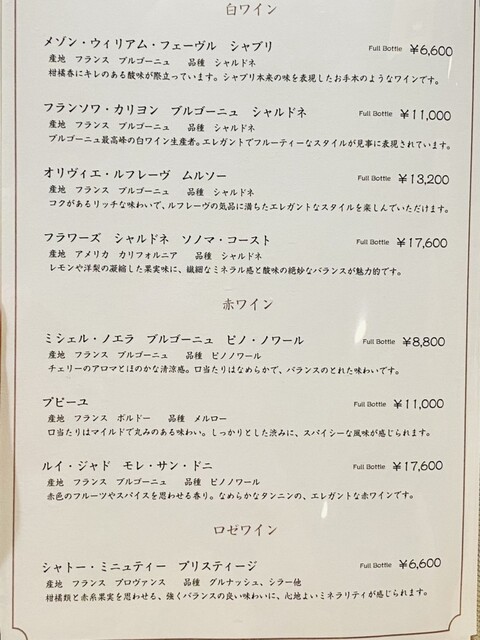 白ワイン
メゾン・ウィリアム・フェーヴル シャブリ Full Bottle ￥6,600
産地 フランス ブルゴーニュ 品種 シャルドネ
柑橘香にキレのある酸味が際立っています。シャブリ本来の味を表現したお手本のようなワインです。
フランソワ・カリヨン ブルゴーニュ シャルドネ Full Bottle ￥11,000
産地 フランス ブルゴーニュ 品種 シャルドネ
ブルゴーニュ最高峰の白ワイン生産者。エレガントでフルーティーなスタイルが見事に表現されています。
オリヴィエ・ルフレーヴ ムルソー Full Bottle ￥13,200
産地 フランス ブルゴーニュ 品種 シャルドネ
コクがあるリッチな味わいで、ルフレーヴの気品に満ちたエレガントなスタイルを楽しんでいただけます。
フラワーズ シャルドネ ソノマ・コースト Full Bottle ￥17,600
産地 アメリカ カリフォルニア 品種 シャルドネ
レモンや洋梨の凝縮した果実味に、繊細なミネラル感と酸味の絶妙なバランスが魅力的です。
赤ワイン
ミシェル・ノエラ ブルゴーニュ ピノ・ノワール Full Bottle ￥8,800
産地 フランス ブルゴーニュ 品種 ピノノワール
チェリーのアロマとほのかな清涼感。口当たりはなめらかで、バランスのとれた味わいです。
プピーユ Full Bottle ￥11,000
産地 フランス ボルドー 品種 メルロー
口当たりはマイルドで丸みのある味わい。しっかりとした渋みに、スパイシーな風味が感じられます。
ルイ・ジャド モレ・サン・ドニ Full Bottle ￥17,600
産地 フランス ブルゴーニュ 品種 ピノノワール
赤色のフルーツやスパイスを思わせる香り。なめらかなタンニンの、エレガントな赤ワインです。
ロゼワイン
シャトー・ミニュティー プリスティージ Full Bottle ￥6,600
産地 フランス プロヴァンス 品種 グルナッシュ、シラー他
柑橘類と赤糸果実を思わせる、強くバランスの良い味わいに、心地よいミネラリティが感じられます。